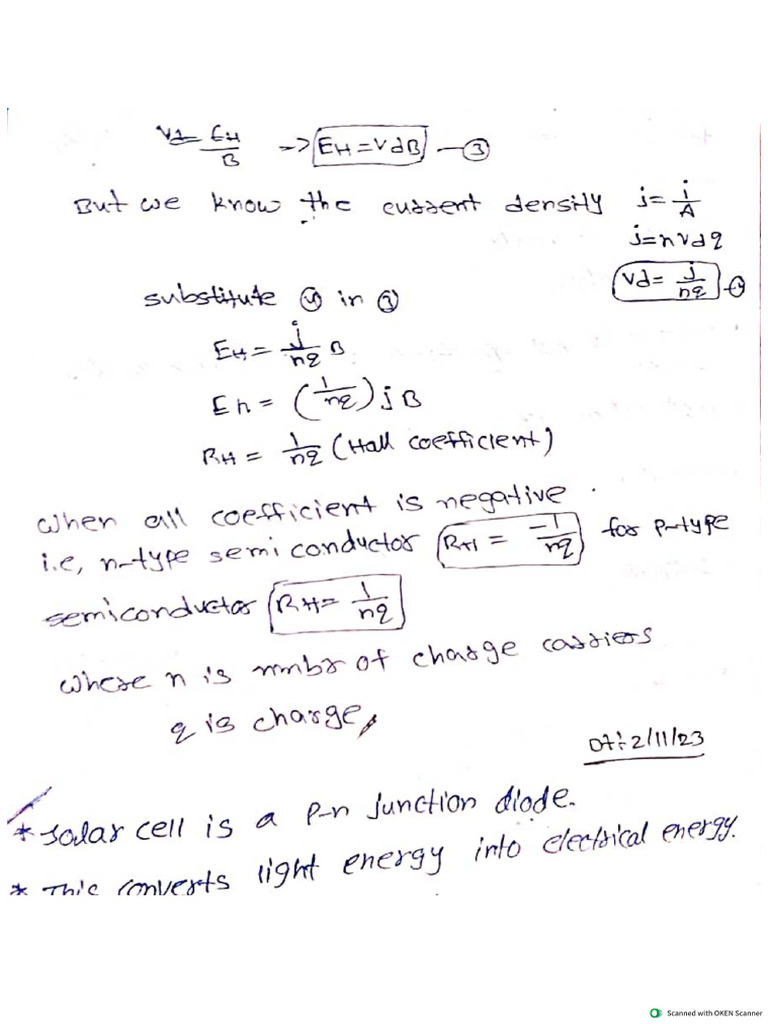 vd = EH/B -> EH = VdB — ③
But we know the current density j = i/A
j = nvdq
vd = j/nq — ④
substitute ④ in ③
EH = j/nq B
En = (1/nq) j B
RH = 1/nq (Hall coefficient)
when all coefficient is negative
i.e, n-type semi conductor RH = -1/nq for p-type
semiconductor RH = 1/nq
where n is nmbr of charge carriers
q is charge,
Dt: 2/11/23
* Solar cell is a p-n junction diode.
* This converts light energy into electrical energy.
Scanned with OKEN Scanner